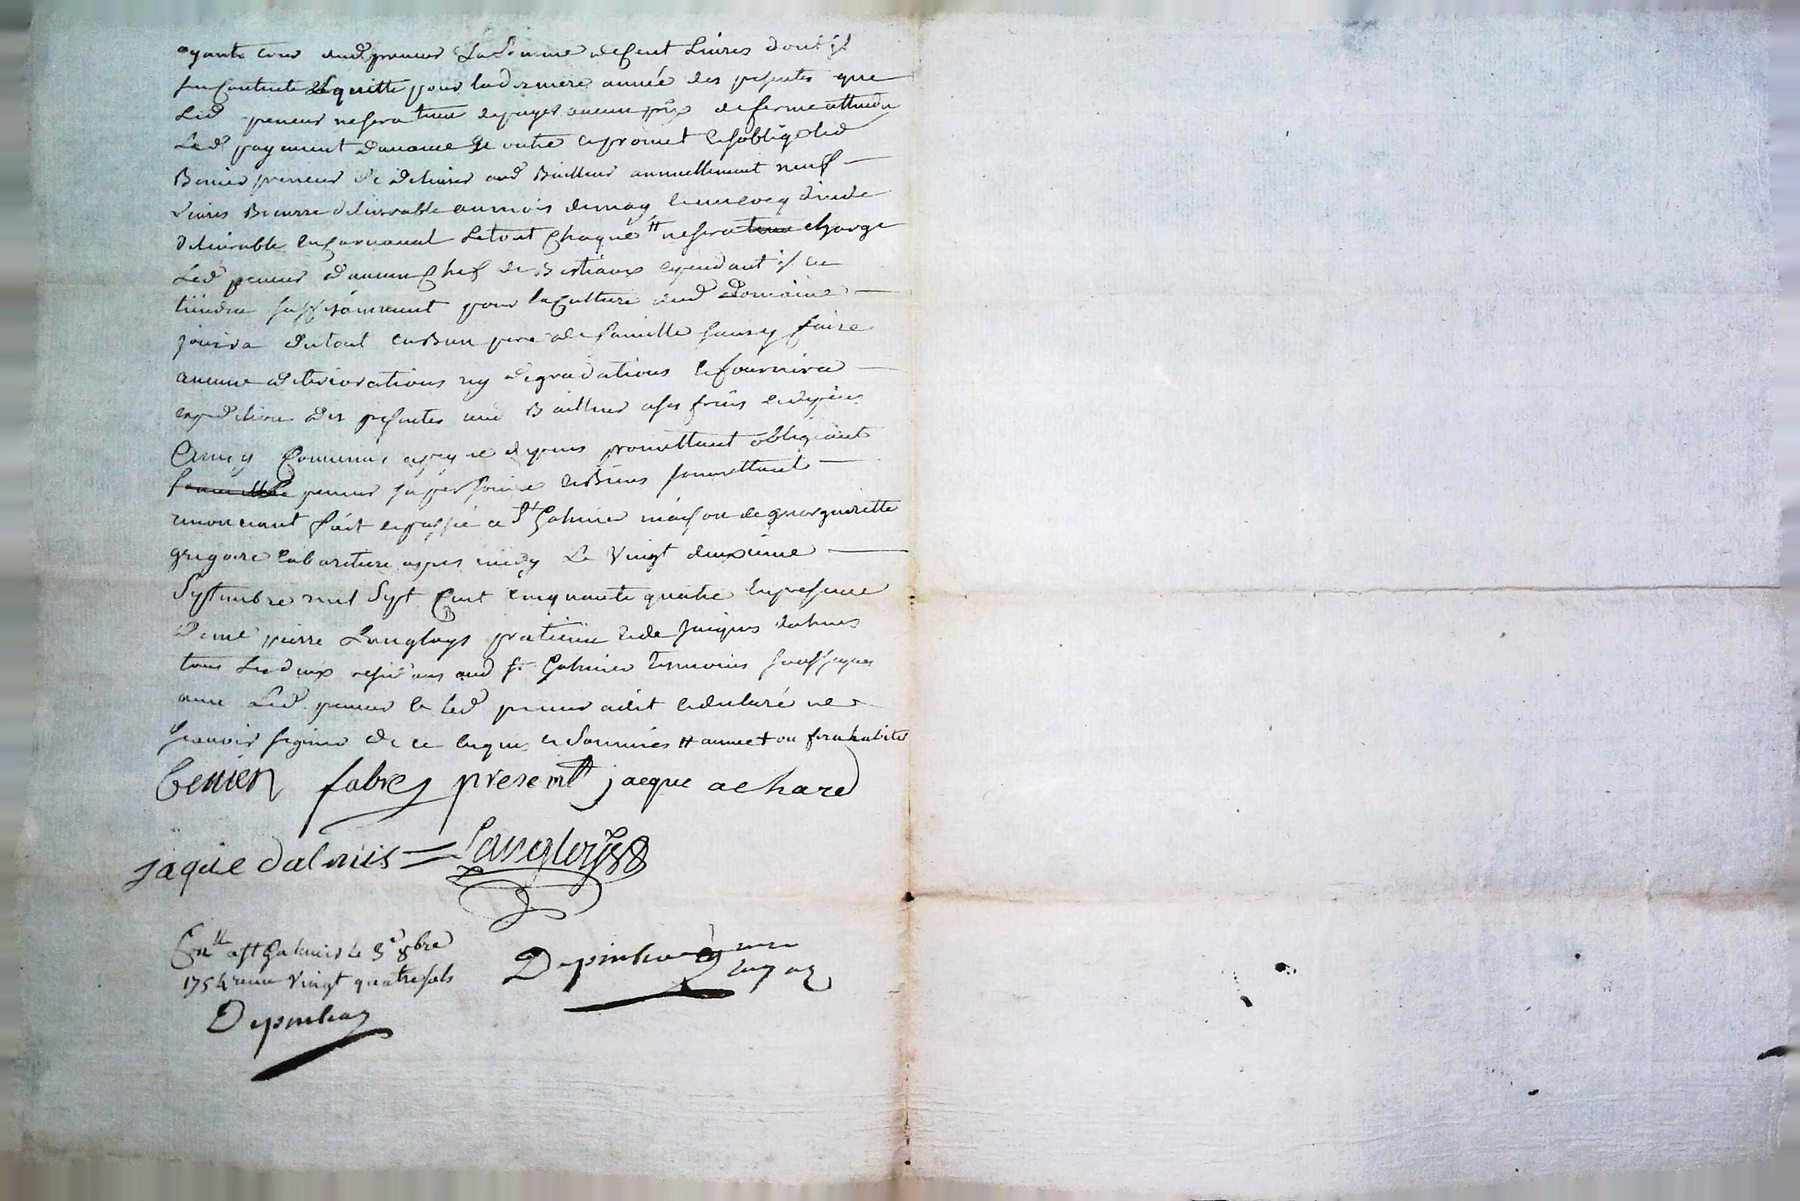 ayante cour dud preneur La Somme de Cent Livres dont il
Contente & quitte pour la derniere année des presentes que
Led preneur ne sera tenu de payer aucun prix de ferme attendu
Led payement d'avance & outre ce promet & s'oblige led
preneur de delivrer aud Bailleur annuellement neuf
Livres Beurre delivrable au mois de may & un cocq d'inde
delivrable en Carnaval Le tout Chaque # ne sera tenu charge
Led preneur d'aucun Chef de Bestiaux cependant il en
tiendra suffisamment pour la Culture dud Domaine
jouira du tout en Bon pere de famille sans y faire
aucune deteriorations ny degradations & fournira
expedition des presentes aud Bailleur a ses frais & depens
Car ainsy Convenu promettant obligeant
preneur sa personne & Biens soumettant
renonceant fait & passé a St Galmier maison de margueritte
gregoire cabaretiere apres midy Le Vingt deuxieme
Septembre mil Sept Cent Cinquante quatre En presence
De me pierre Langloys praticien & de Jacques dalmes
tous Les deux residans aud St Galmier temoins soussignes
avec Led preneur & led preneur a dit & declaré ne
scavoir signer de ce enquis & Sommés # année
fabre present jacque achard
jaque dalmis = Langloys
Conlle a St Galmier le 3e 8bre
1754 reçu Vingt quatre sols